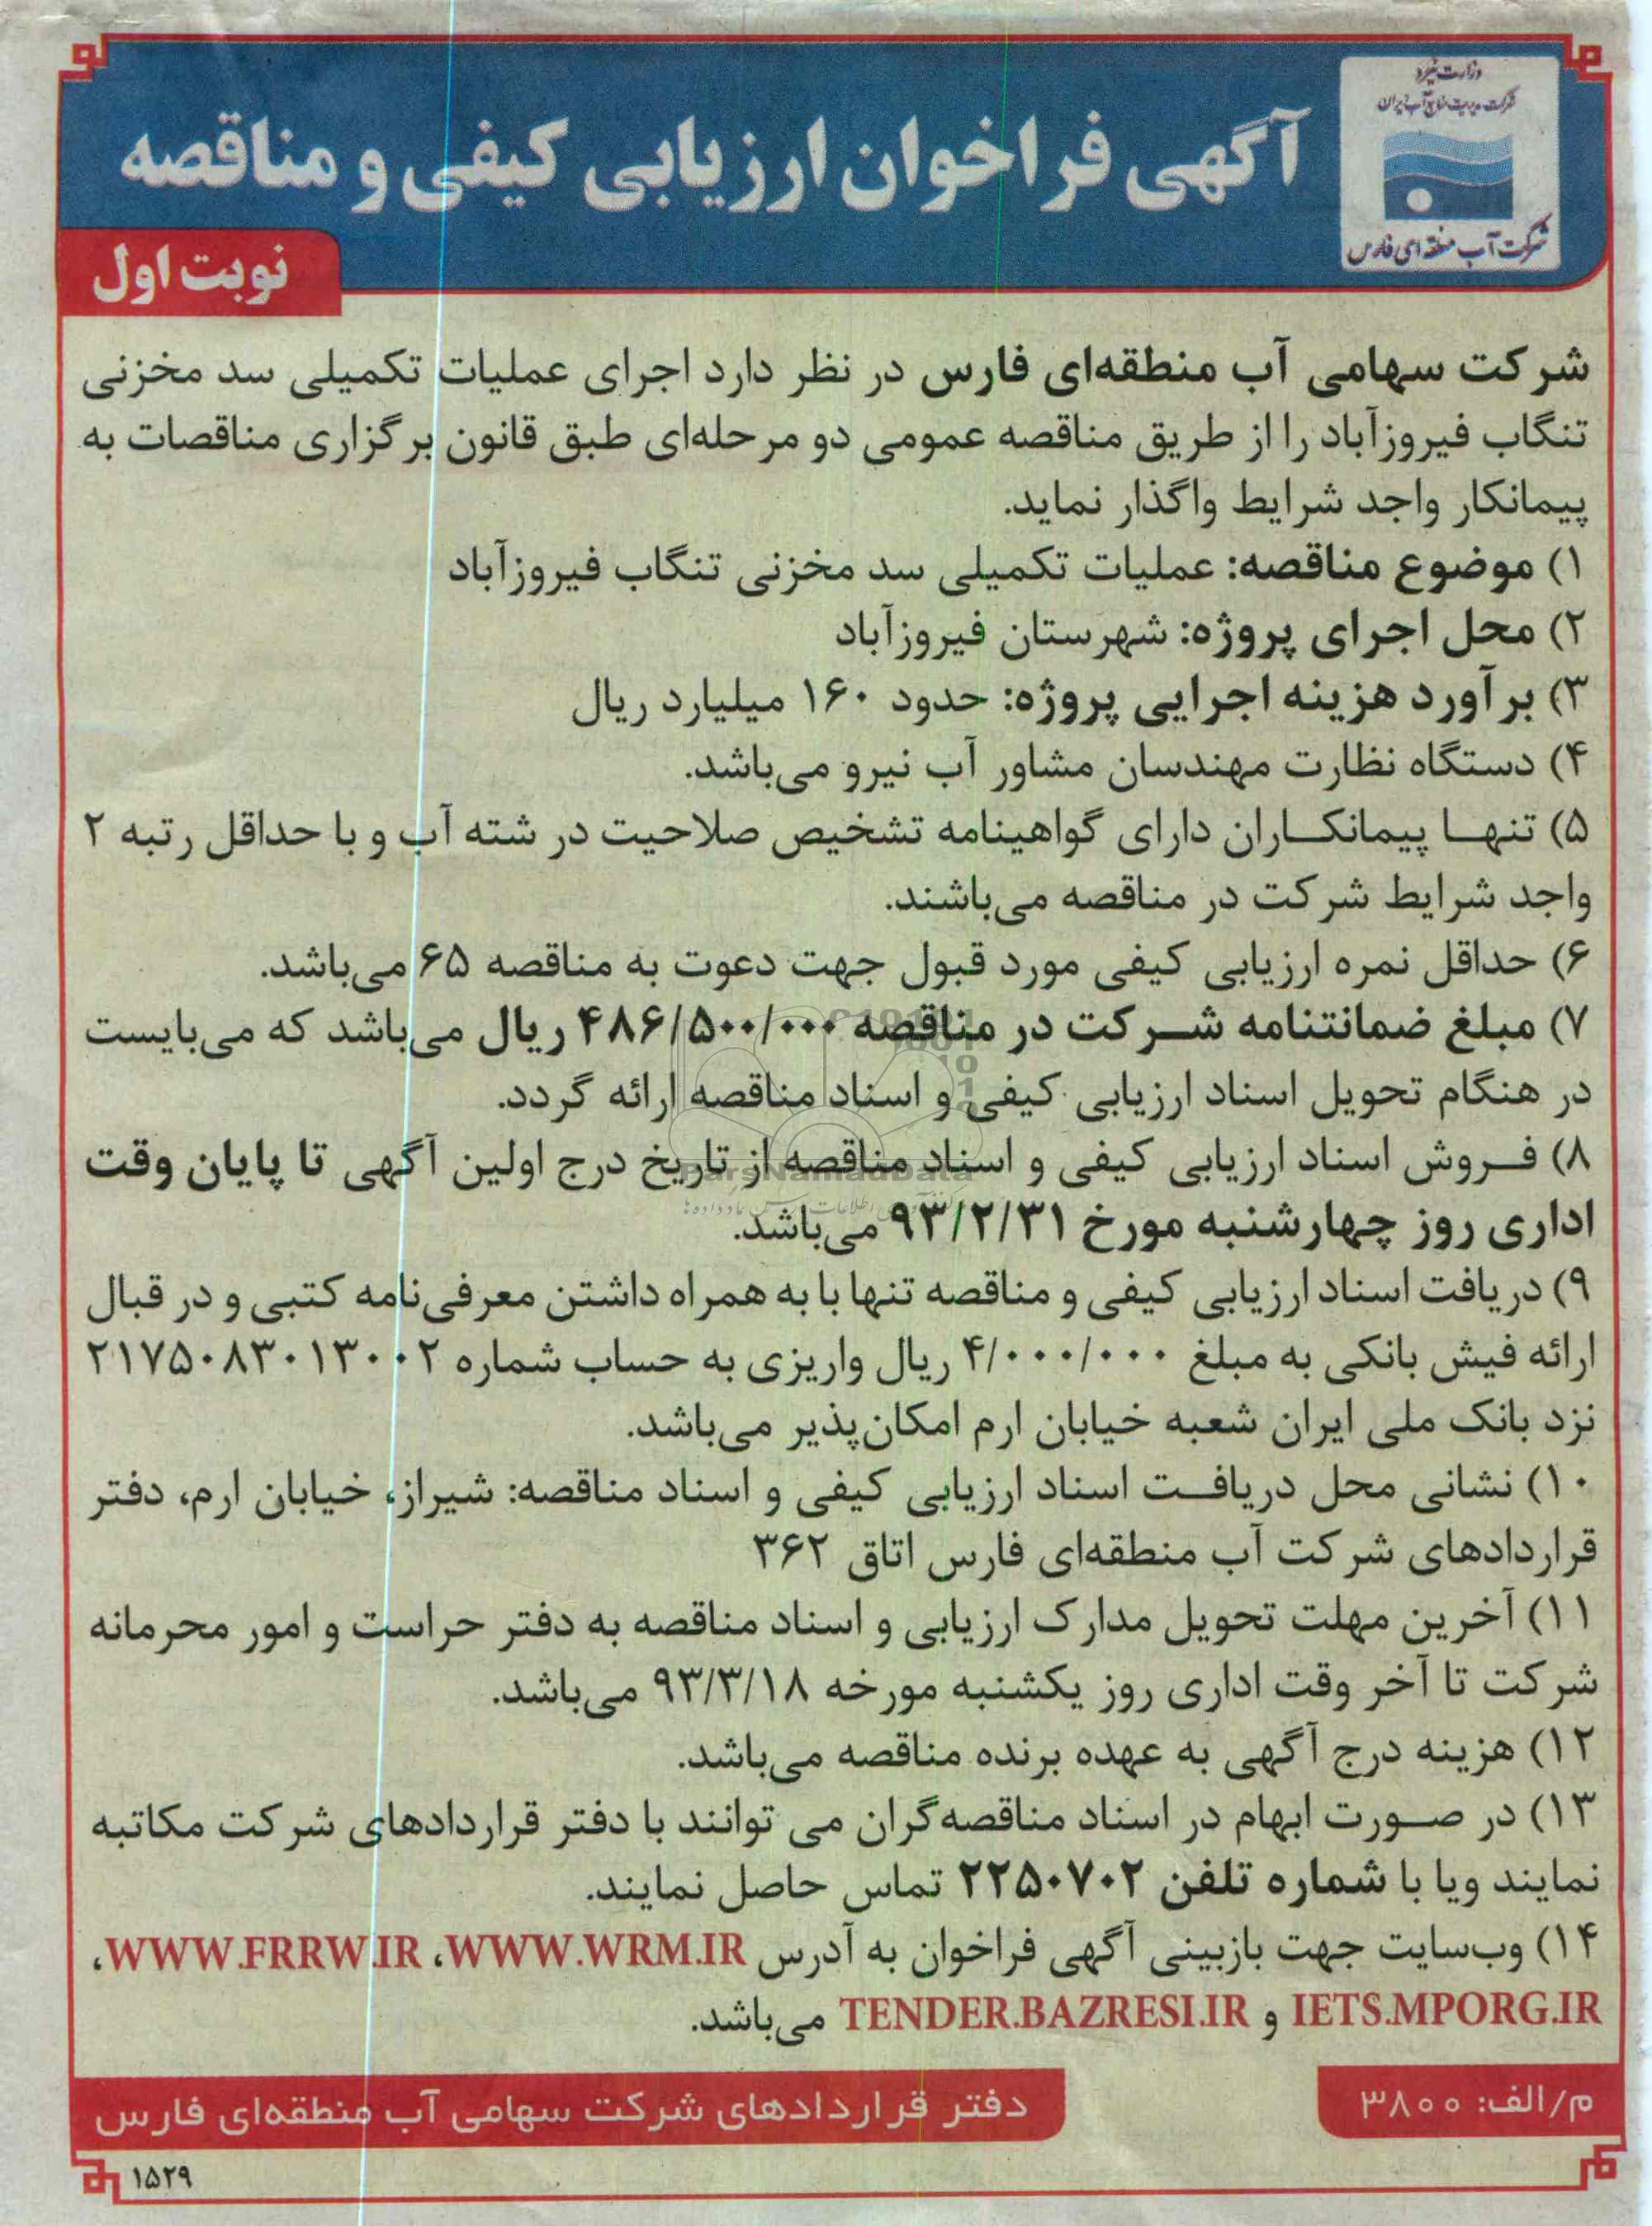 وزارت نیرو
شرکت مدیریت منابع آب ایران
شرکت آب منطقه ای فارس
آگهی فراخوان ارزیابی کیفی و مناقصه
نوبت اول
شرکت سهامی آب منطقه‌ای فارس در نظر دارد اجرای عملیات تکمیلی سد مخزنی
تنگاب فیروزآباد را از طریق مناقصه عمومی دو مرحله‌ای طبق قانون برگزاری مناقصات به
پیمانکار واجد شرایط واگذار نماید.
۱) موضوع مناقصه: عملیات تکمیلی سد مخزنی تنگاب فیروزآباد
۲) محل اجرای پروژه: شهرستان فیروزآباد
۳) برآورد هزینه اجرایی پروژه: حدود ۱۶۰ میلیارد ریال
۴) دستگاه نظارت مهندسان مشاور آب نیرو می‌باشد.
۵) تنهـا پیمانکـاران دارای گواهینامه تشخیص صلاحیت در شته آب و با حداقل رتبه ۲
واجد شرایط شرکت در مناقصه می‌باشند.
۶) حداقل نمره ارزیابی کیفی مورد قبول جهت دعوت به مناقصه ۶۵ می‌باشد.
۷) مبلغ ضمانتنامه شـرکت در مناقصه ۴۸۶/۵۰۰/۰۰۰ ریال می‌باشد که می‌بایست
در هنگام تحویل اسناد ارزیابی کیفی و اسناد مناقصه ارائه گردد.
۸) فـروش اسناد ارزیابی کیفی و اسناد مناقصه از تاریخ درج اولین آگهی تا پایان وقت
اداری روز چهارشنبه مورخ ۹۳/۲/۳۱ می‌باشد.
ParsNamadData
۹) دریافت اسناد ارزیابی کیفی و مناقصه تنها با به همراه داشتن معرفی‌نامه کتبی و در قبال
ارائه فیش بانکی به مبلغ ۴/۰۰۰/۰۰۰ ریال واریزی به حساب شماره ۲۱۷۵۰۸۳۰۱۳۰۰۲
نزد بانک ملی ایران شعبه خیابان ارم امکان‌پذیر می‌باشد.
۱۰) نشانی محل دریافـت اسناد ارزیابی کیفی و اسناد مناقصه: شیراز، خیابان ارم، دفتر
قراردادهای شرکت آب منطقه‌ای فارس اتاق ۳۶۲
۱۱) آخرین مهلت تحویل مدارک ارزیابی و اسناد مناقصه به دفتر حراست و امور محرمانه
شرکت تا آخر وقت اداری روز یکشنبه مورخه ۹۳/۳/۱۸ می‌باشد.
۱۲) هزینه درج آگهی به عهده برنده مناقصه می‌باشد.
۱۳) در صـورت ابهام در اسناد مناقصه‌گران می توانند با دفتر قراردادهای شرکت مکاتبه
نمایند ویا با شماره تلفن ۲۲۵۰۷۰۲ تماس حاصل نمایند.
۱۴) وب‌سایت جهت بازبینی آگهی فراخوان به آدرس WWW.WRM.IR، WWW.FRRW.IR،
IETS.MPORG.IR و TENDER.BAZRESI.IR می‌باشد.
م/الف: ۳۸۰۰
دفتر قراردادهای شرکت سهامی آب منطقه‌ای فارس
۱۵۲۹